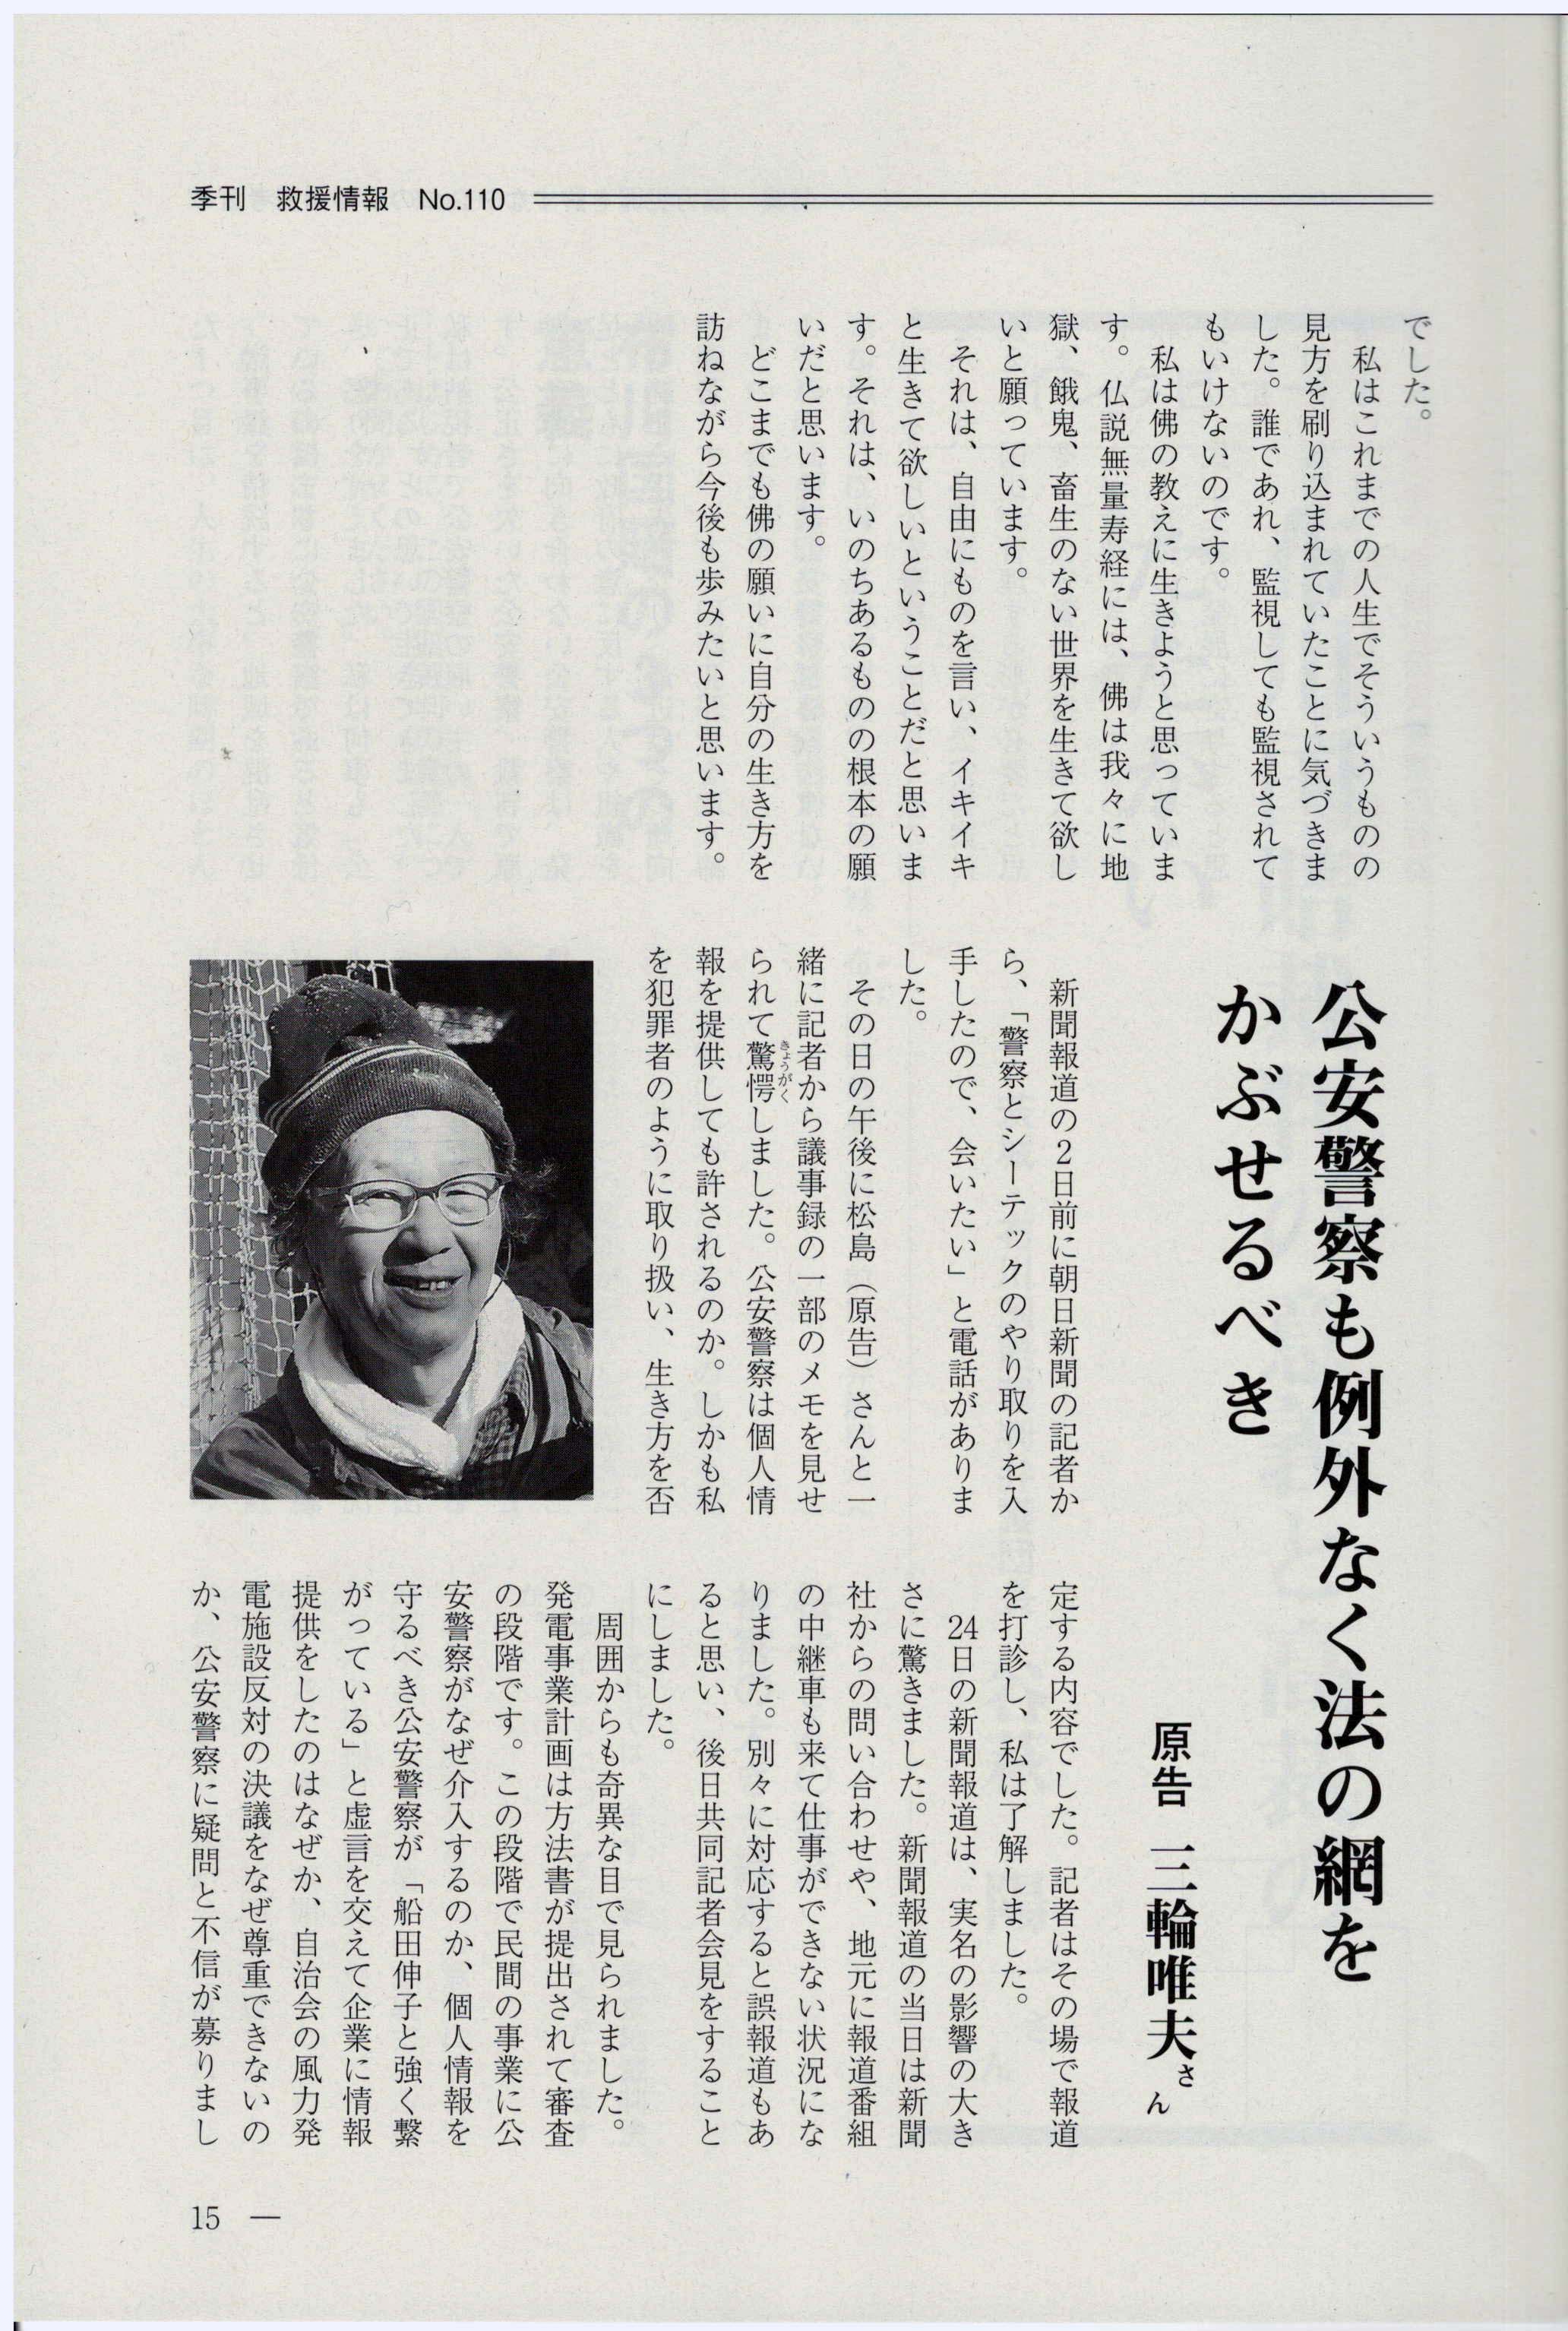 季刊　救援情報　No.110
でした。
　私はこれまでの人生でそういうものの
見方を刷り込まれていたことに気づきま
した。誰であれ、監視しても監視されて
もいけないのです。
　私は佛の教えに生きようと思っていま
す。仏説無量寿経には、佛は我々に地
獄、餓鬼、畜生のない世界を生きて欲し
いと願っています。
　それは、自由にものを言い、イキイキ
と生きて欲しいということだと思いま
す。それは、いのちあるものの根本の願
いだと思います。
　どこまでも佛の願いに自分の生き方を
訪ねながら今後も歩みたいと思います。
公安警察も例外なく法の網を
かぶせるべき
原告　三輪唯夫さん
　新聞報道の2日前に朝日新聞の記者か
ら、「警察とシーテックのやり取りを入
手したので、会いたい」と電話がありま
した。
　その日の午後に松島（原告）さんと一
緒に記者から議事録の一部のメモを見せ
られて驚愕きょうがくしました。公安警察は個人情
報を提供しても許されるのか。しかも私
を犯罪者のように取り扱い、生き方を否
定する内容でした。記者はその場で報道
を打診し、私は了解しました。
　24日の新聞報道は、実名の影響の大き
さに驚きました。新聞報道の当日は新聞
社からの問い合わせや、地元に報道番組
の中継車も来て仕事ができない状況にな
りました。別々に対応すると誤報道もあ
ると思い、後日共同記者会見をすること
にしました。
　周囲からも奇異な目で見られました。
発電事業計画は方法書が提出されて審査
の段階です。この段階で民間の事業に公
安警察がなぜ介入するのか、個人情報を
守るべき公安警察が「船田伸子と強く繋
がっている」と虚言を交えて企業に情報
提供をしたのはなぜか、自治会の風力発
電施設反対の決議をなぜ尊重できないの
か、公安警察に疑問と不信が募りまし
15　—